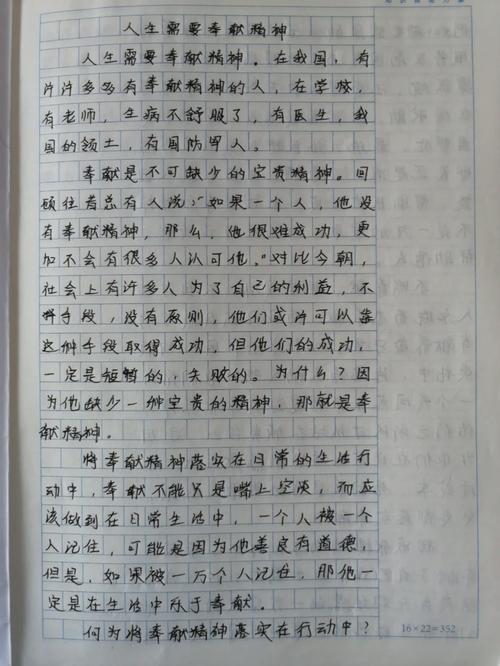 人生需要奉献精神
人生需要奉献精神。在我国，有
许许多多有奉献精神的人，在学校，
有老师，生病不舒服了，有医生，我
国的领土，有国防军人。
奉献是不可缺少的宝贵精神。回
顾往昔总有人说：“如果一个人，他没
有奉献精神，那么，他很难成功，更
加不会有很多人认可他。”对比今朝，
社会上有许多人为了自己的利益，不
择手段，没有原则，他们或许可以靠
这种手段取得成功，但他们的成功，
一定是短暂的，失败的。为什么？因
为他缺少一种宝贵的精神，那就是奉
献精神。
将奉献精神落实在日常的生活行
动中，奉献不能只是嘴上空谈，而应
该做到在日常生活中，一个人被一个
人记住，可能是因为他善良有道德
但是，如果被一万个人记住，那他一
定是在生活中乐于奉献。
何为将奉献精神落实在行动中？
16×22=352